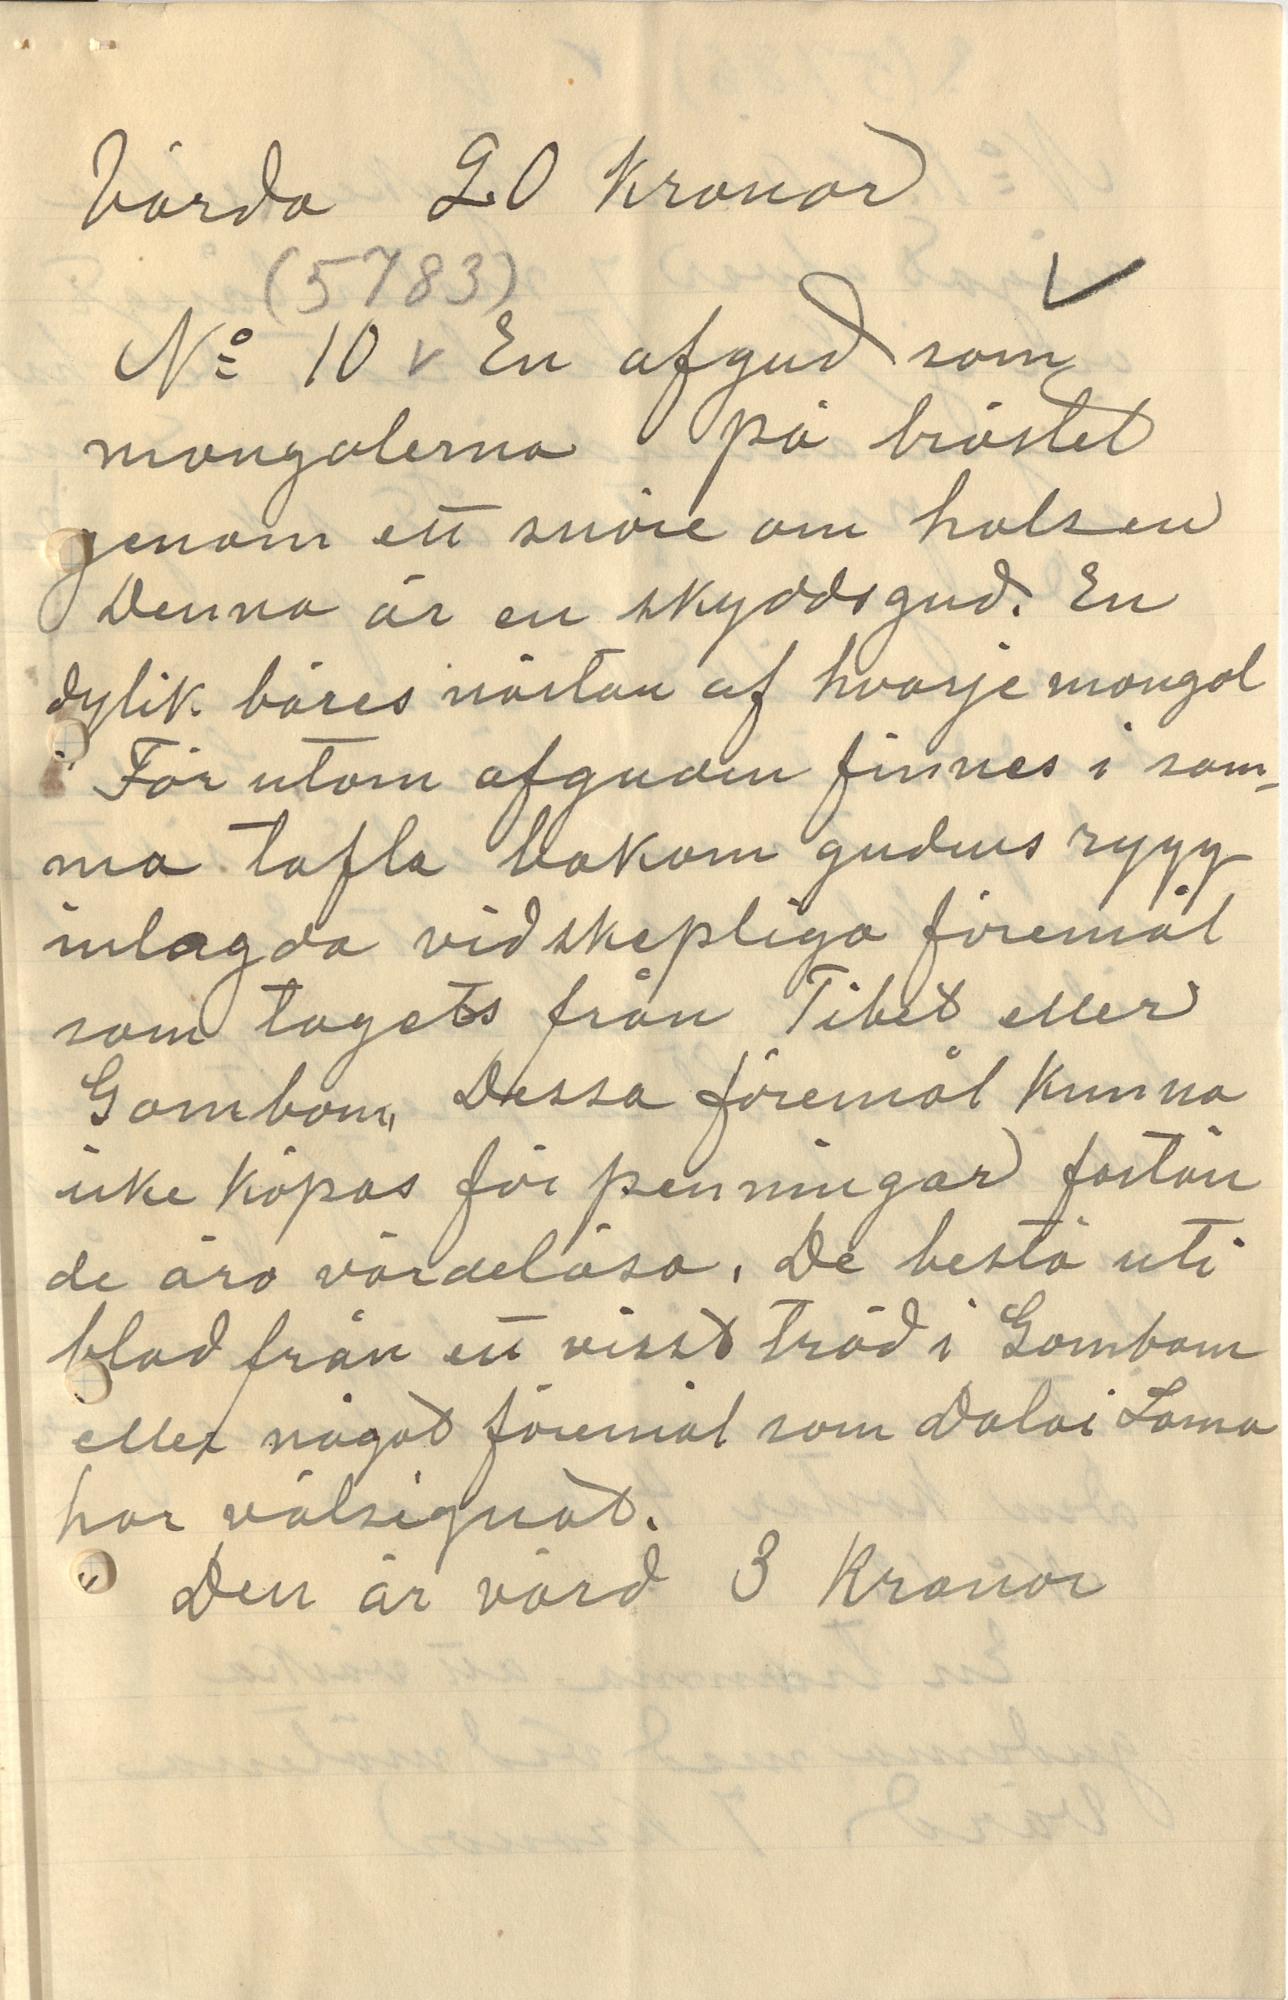 Värda 20 Kronor
(5783)
No 10 v En afgud som
mongolerna på bröstet
genom ett snöre om halsen
Denna är en skyddsgud. En
dylik bäres nästan af hvarje mongol
För utom afguden finnes i sam-
ma tafla bakom gudens rygg
inlagda vidskepliga föremål
som tagets från Tibet eller
Gombom, Dessa föremål Kunna
icke Köpas för penningar fastän
de äro värdelösa. De bestå uti
blad från ett visst träd i Gombom
eller något föremål som Dalai Lama
har välsignat.
Den är värd 3 Kronor